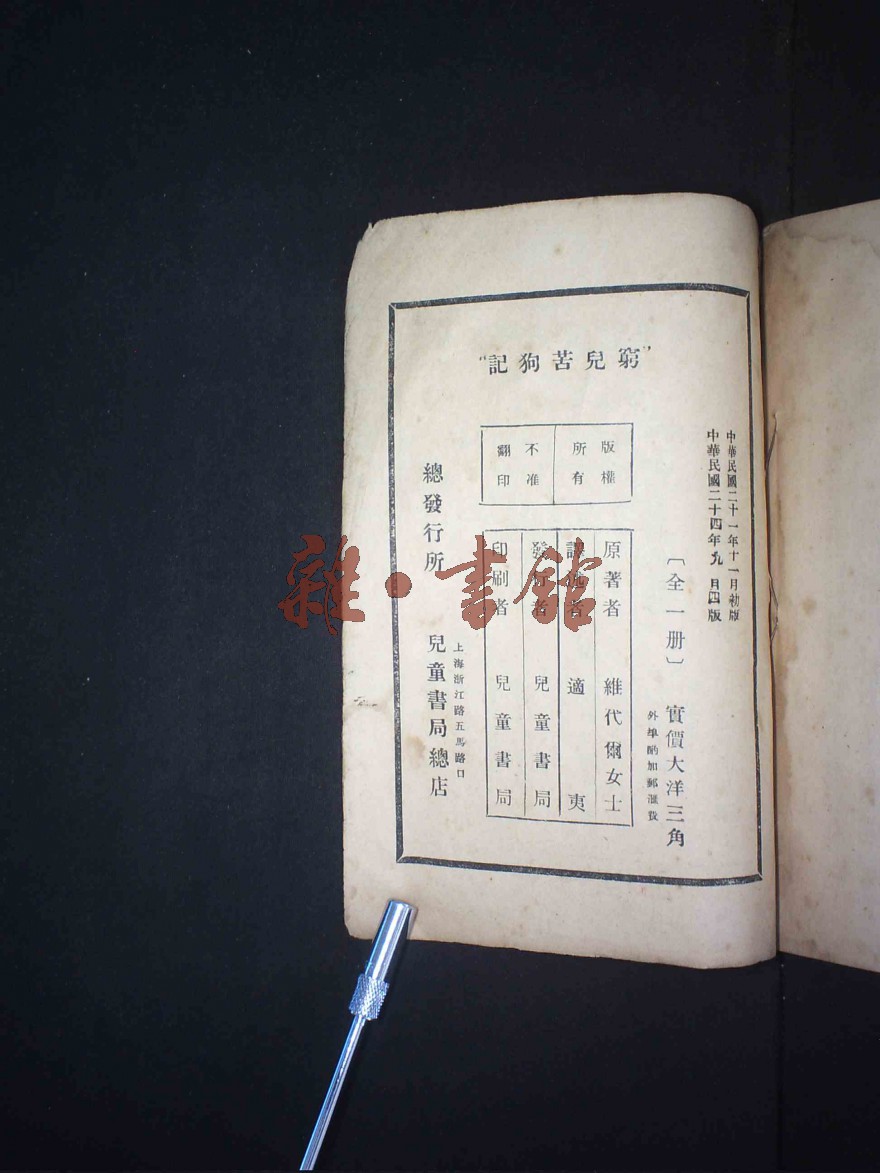 中華民國二十一年十一月初版
中華民國二十四年九月四版
"窮兒苦狗記"
〔全一册〕實價大洋三角
外埠酌加郵滙費
版權所有
不准翻印
原著者 維代爾女士
譯述者 適夷
發行者 兒童書局
印刷者 兒童書局
上海浙江路五馬路口
總發行所 兒童書局總店
雜·書館